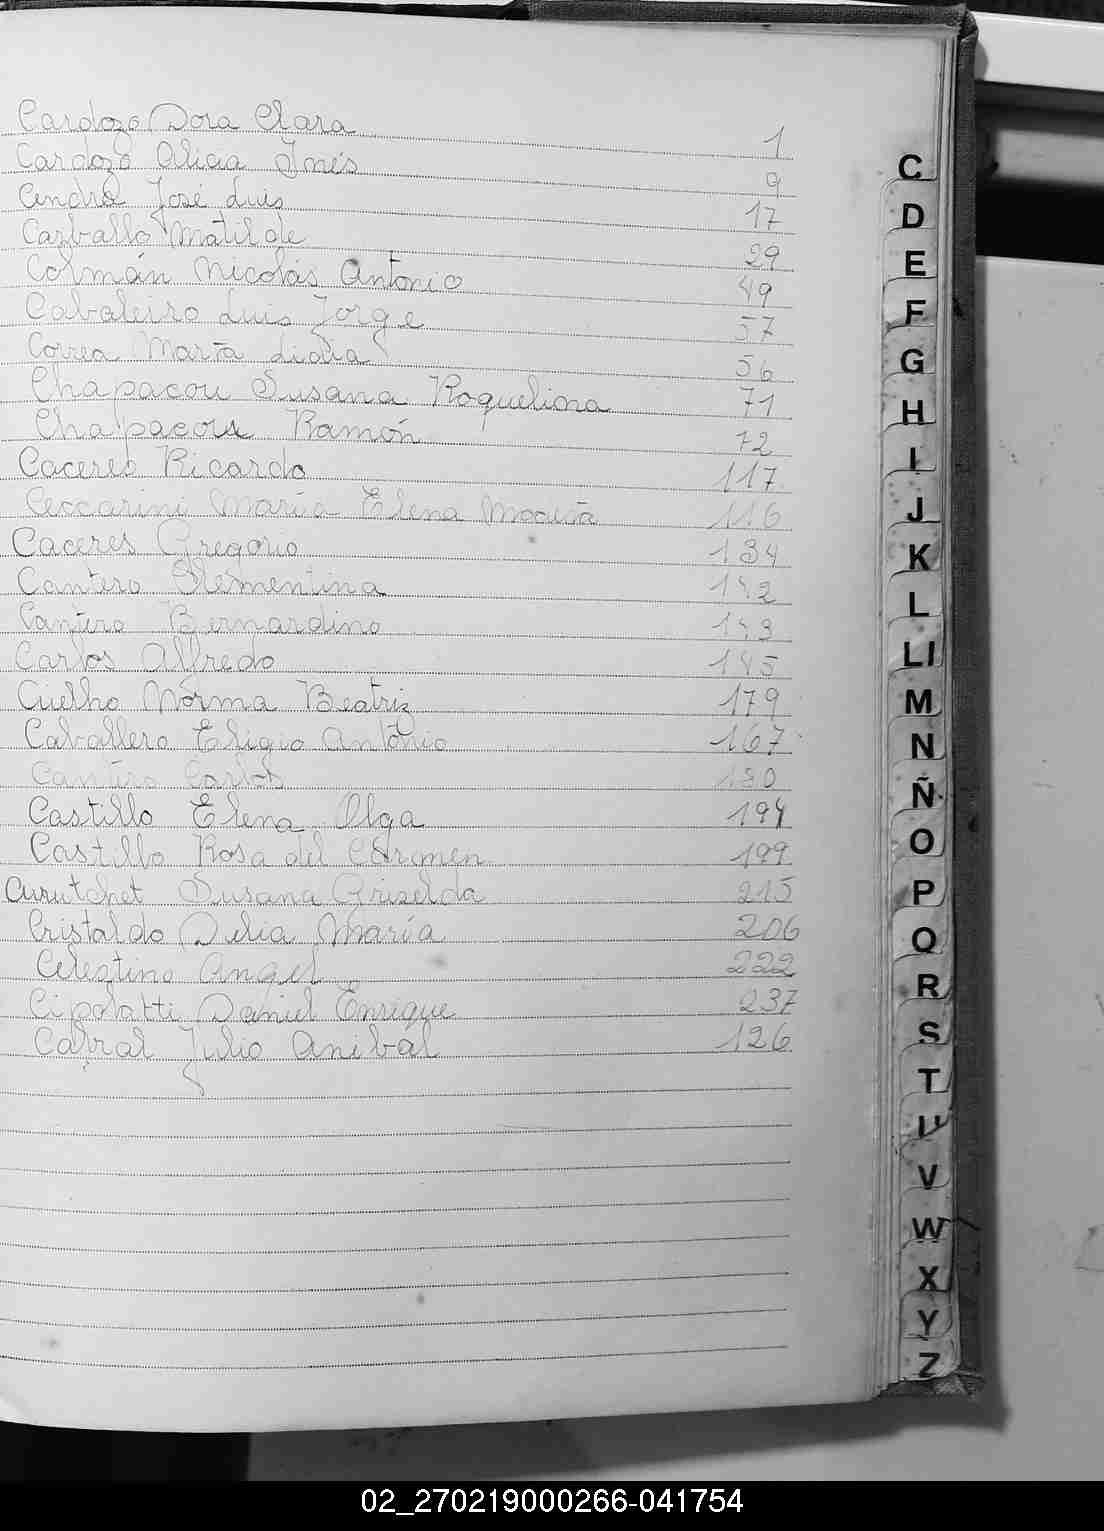 Cardozo Dora Clara 1
Cardozo Alicia Inés 9
Cendra José Luis 17
Carballo Matilde 29
Colmán Nicolás Antonio 49
Cabaleiro Luis Jorge 57
Correa María Lidia 56
Chapacou Susana Roquelina 71
Chapacou Ramón 72
Caceres Ricardo 117
Ceccarini María Elena 116
Caceres Gregorio 134
Cantero Clementina 142
Cantero Bernardino 143
Carlos Alfredo 145
Cuelho Norma Beatriz 179
Caballero Eligio Antonio 167
Cantero Carlos 180
Castillo Elena Olga 194
Castillo Rosa del Carmen 199
Curutchet Susana Griselda 215
Cristaldo Delia María 206
Celestino Angel 222
Cipolatti Daniel Enrique 237
Cabral Julio Anibal 126
C
D
E
F
G
H
I
J
K
L
Ll
M
N
Ñ
O
P
Q
R
S
T
U
V
W
X
Y
Z
02_270219000266-041754